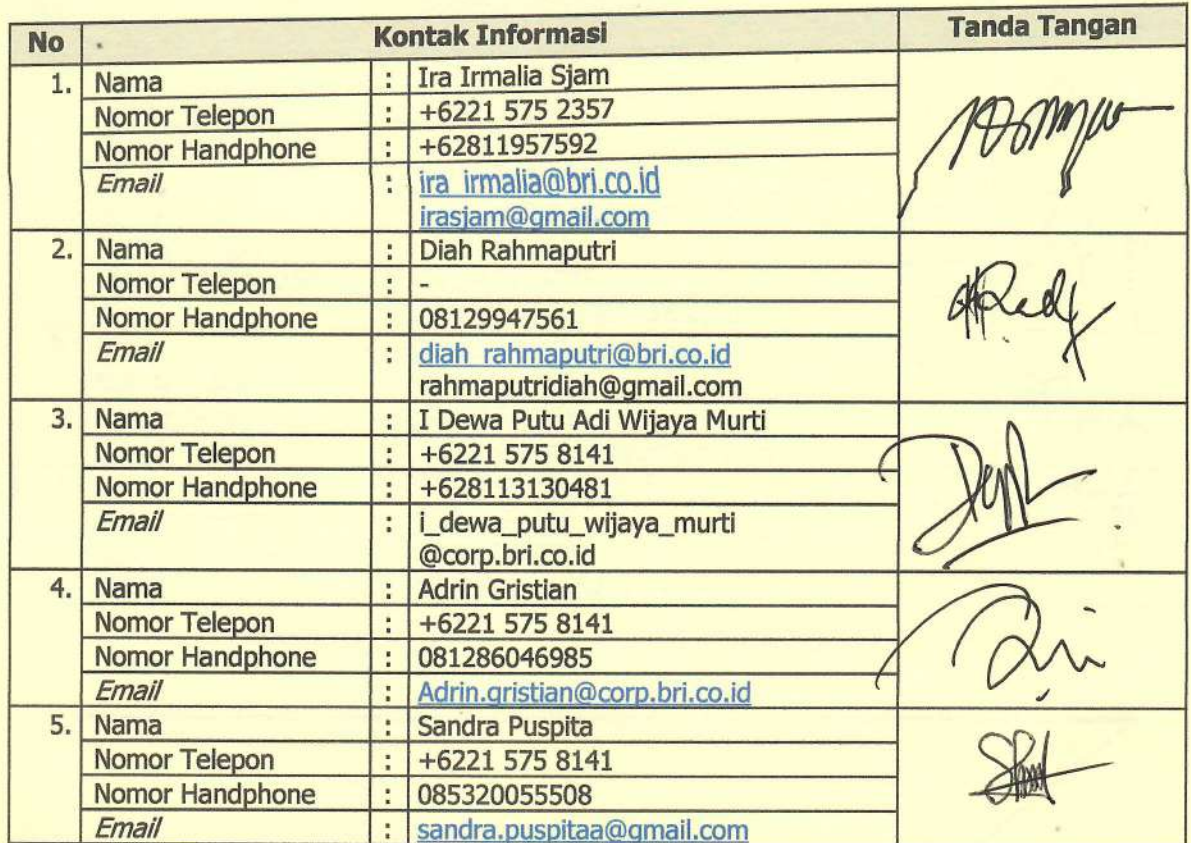 No Kontak Informasi Tanda Tangan
1. Nama : Ira Irmalia Sjam
Nomor Telepon : +6221 575 2357
Nomor Handphone : +62811957592
Email : ira_irmalia@bri.co.id
irasjam@gmail.com
2. Nama : Diah Rahmaputri
Nomor Telepon : -
Nomor Handphone : 08129947561
Email : diah_rahmaputri@bri.co.id
rahmaputridiah@gmail.com
3. Nama : I Dewa Putu Adi Wijaya Murti
Nomor Telepon : +6221 575 8141
Nomor Handphone : +628113130481
Email : i_dewa_putu_wijaya_murti
@corp.bri.co.id
4. Nama : Adrin Gristian
Nomor Telepon : +6221 575 8141
Nomor Handphone : 081286046985
Email : Adrin.gristian@corp.bri.co.id
5. Nama : Sandra Puspita
Nomor Telepon : +6221 575 8141
Nomor Handphone : 085320055508
Email : sandra.puspitaa@gmail.com